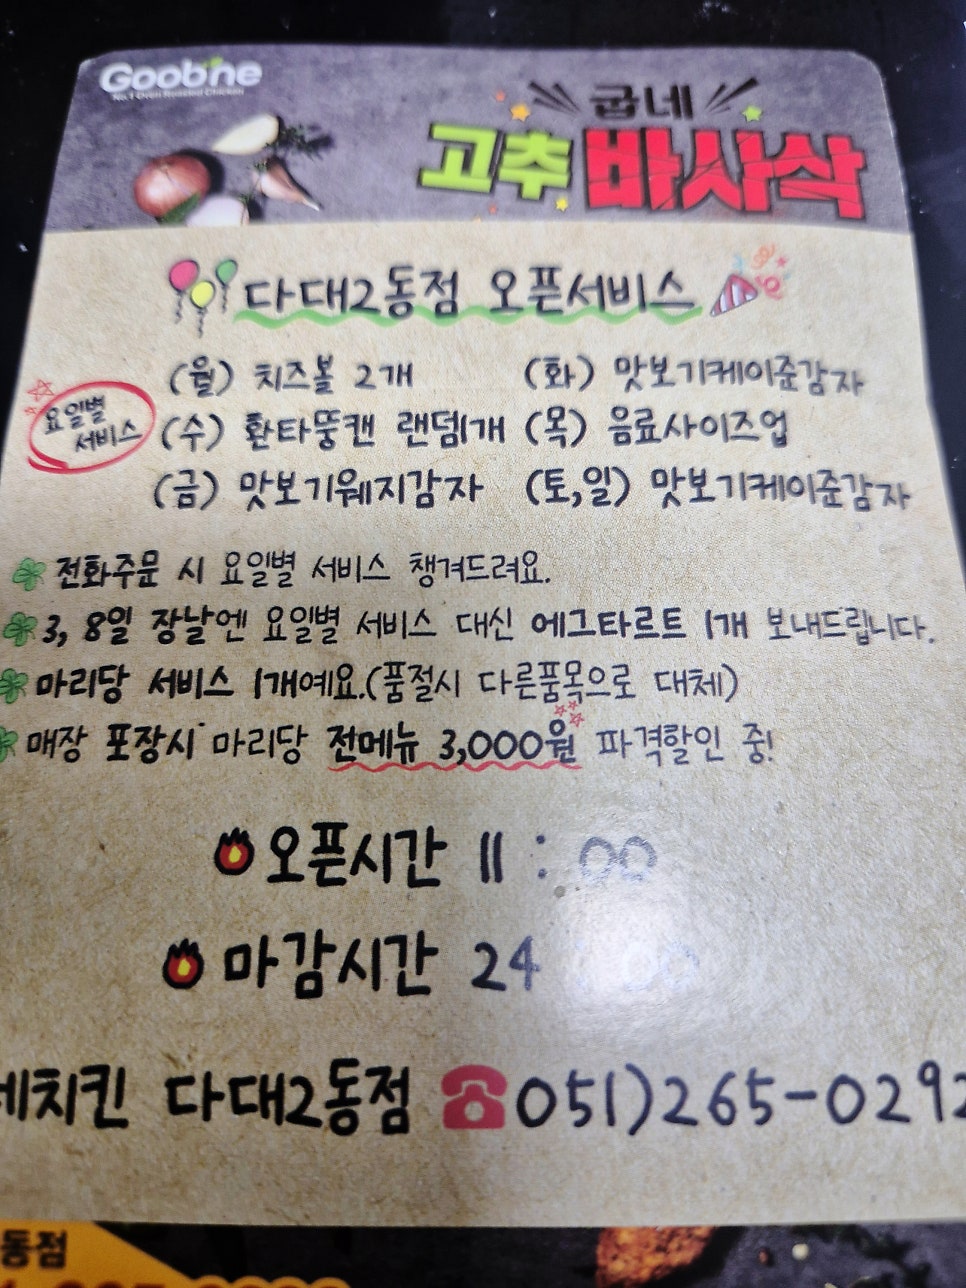 Goobne
No.1 Oven Roasted Chicken
굽네
고추 바사삭
다대2동점 오픈서비스
요일별
서비스
(월) 치즈볼 2개 (화) 맛보기케이준감자
(수) 환타뚱캔 랜덤1개 (목) 음료사이즈업
(금) 맛보기웨지감자 (토,일) 맛보기케이준감자
전화주문 시 요일별 서비스 챙겨드려요.
3, 8일 장날엔 요일별 서비스 대신 에그타르트 1개 보내드립니다.
마리당 서비스 1개예요.(품절시 다른품목으로 대체)
매장 포장시 마리당 전메뉴 3,000원 파격할인 중!
오픈시간 11 : 00
마감시간 24 : 00
네치킨 다대2동점 ☎051)265-0292
동점